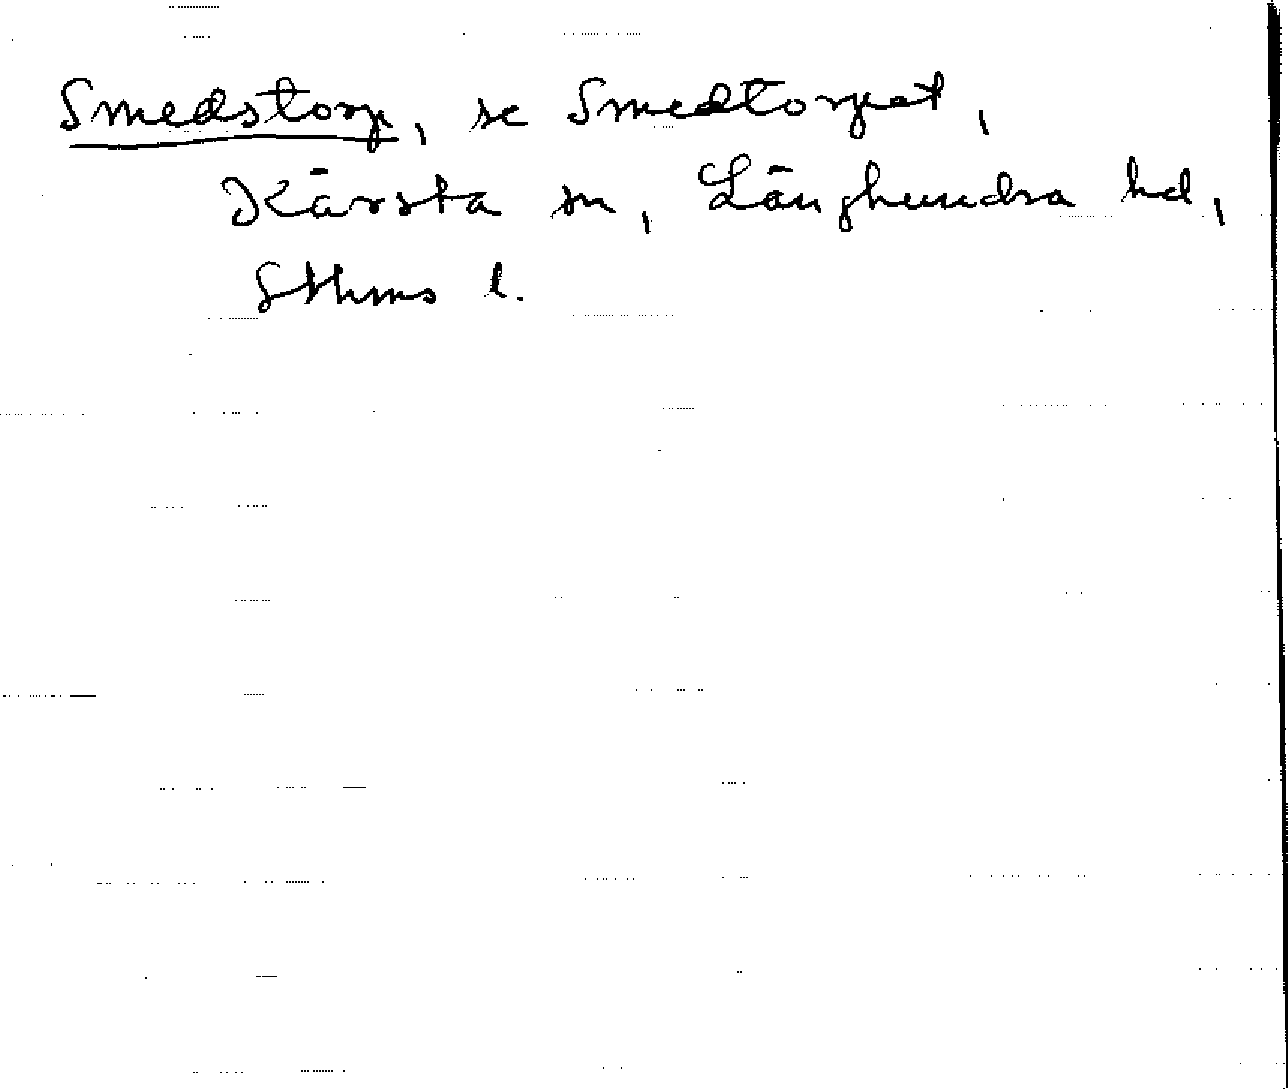 Smedstorp, se Smedtorpet,
Kårsta sn, Långhundra hd,
Sthms l.